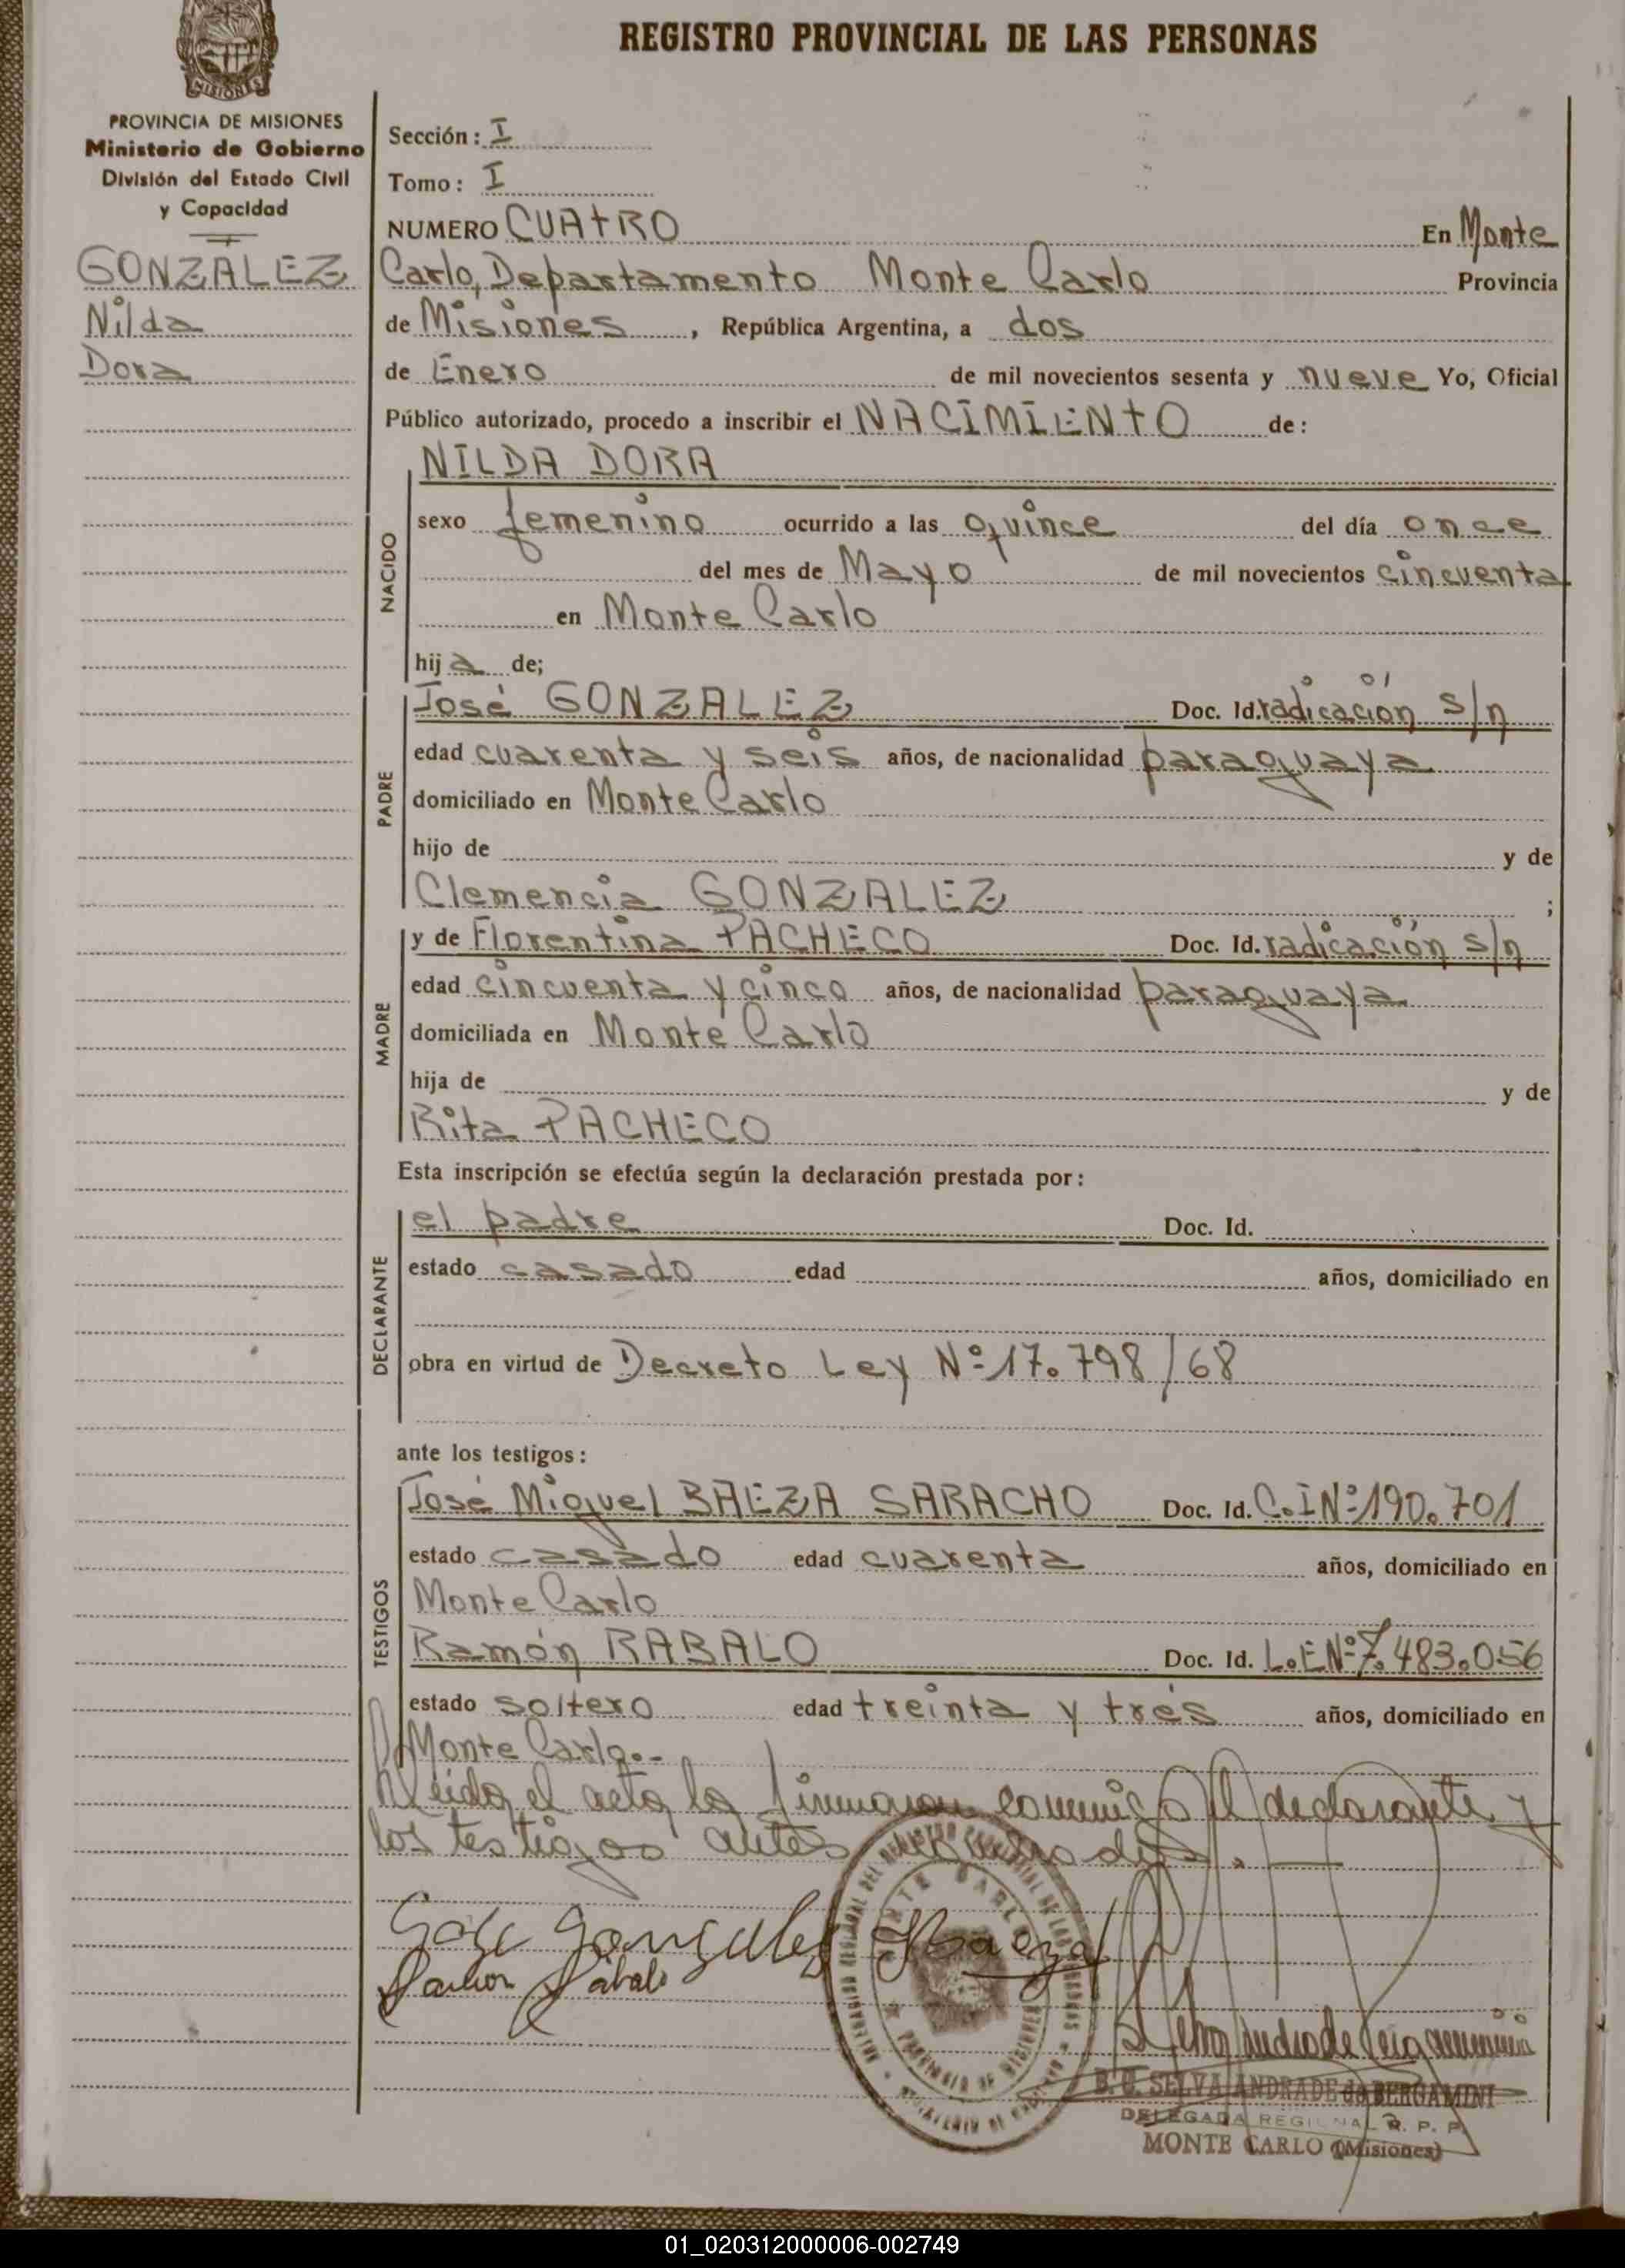 REGISTRO PROVINCIAL DE LAS PERSONAS
MISIONES
PROVINCIA DE MISIONES
Ministerio de Gobierno
División del Estado Civil
y Capacidad
GONZALEZ
Nilda
Dora
Sección: I
Tomo: I
NUMERO CUATRO En Monte
Carlo, Departamento Monte Carlo Provincia
de Misiones, República Argentina, a dos
de Enero de mil novecientos sesenta y nueve Yo, Oficial
Público autorizado, procedo a inscribir el NACIMIENTO de:
NACIDO
NILDA DORA
sexo femenino ocurrido a las quince del día once
del mes de Mayo de mil novecientos cincuenta
en Monte Carlo
hija de;
PADRE
José GONZALEZ Doc. Id. radicación s/n
edad cuarenta y seis años, de nacionalidad paraguaya
domiciliado en Monte Carlo
hijo de y de
Clemencia GONZALEZ ;
MADRE
y de Florentina PACHECO Doc. Id. radicación s/n
edad cincuenta y cinco años, de nacionalidad paraguaya
domiciliada en Monte Carlo
hija de y de
Rita PACHECO
Esta inscripción se efectúa según la declaración prestada por:
DECLARANTE
el padre Doc. Id.
estado casado edad años, domiciliado en
obra en virtud de Decreto Ley Nº 17.798/68
ante los testigos:
TESTIGOS
José Miguel BAEZA SARACHO Doc. Id. C.I Nº 190.701
estado casado edad cuarenta años, domiciliado en
Monte Carlo
Ramón RABALO Doc. Id. L.E Nº 7.483.056
estado soltero edad treinta y trés años, domiciliado en
Monte Carlo.-
Leída el acta la firmaron conmigo el declarante y
los testigos antes
Gonzalez Baeza
Ramon Rabalo
MONTE CARLO
PROVINCIA DE MISIONES
B. U. SELVA ANDRADE de BERGAMINI
DELEGADA REGIONAL R. P. P.
MONTE CARLO (Misiones)
01_020312000006-002749